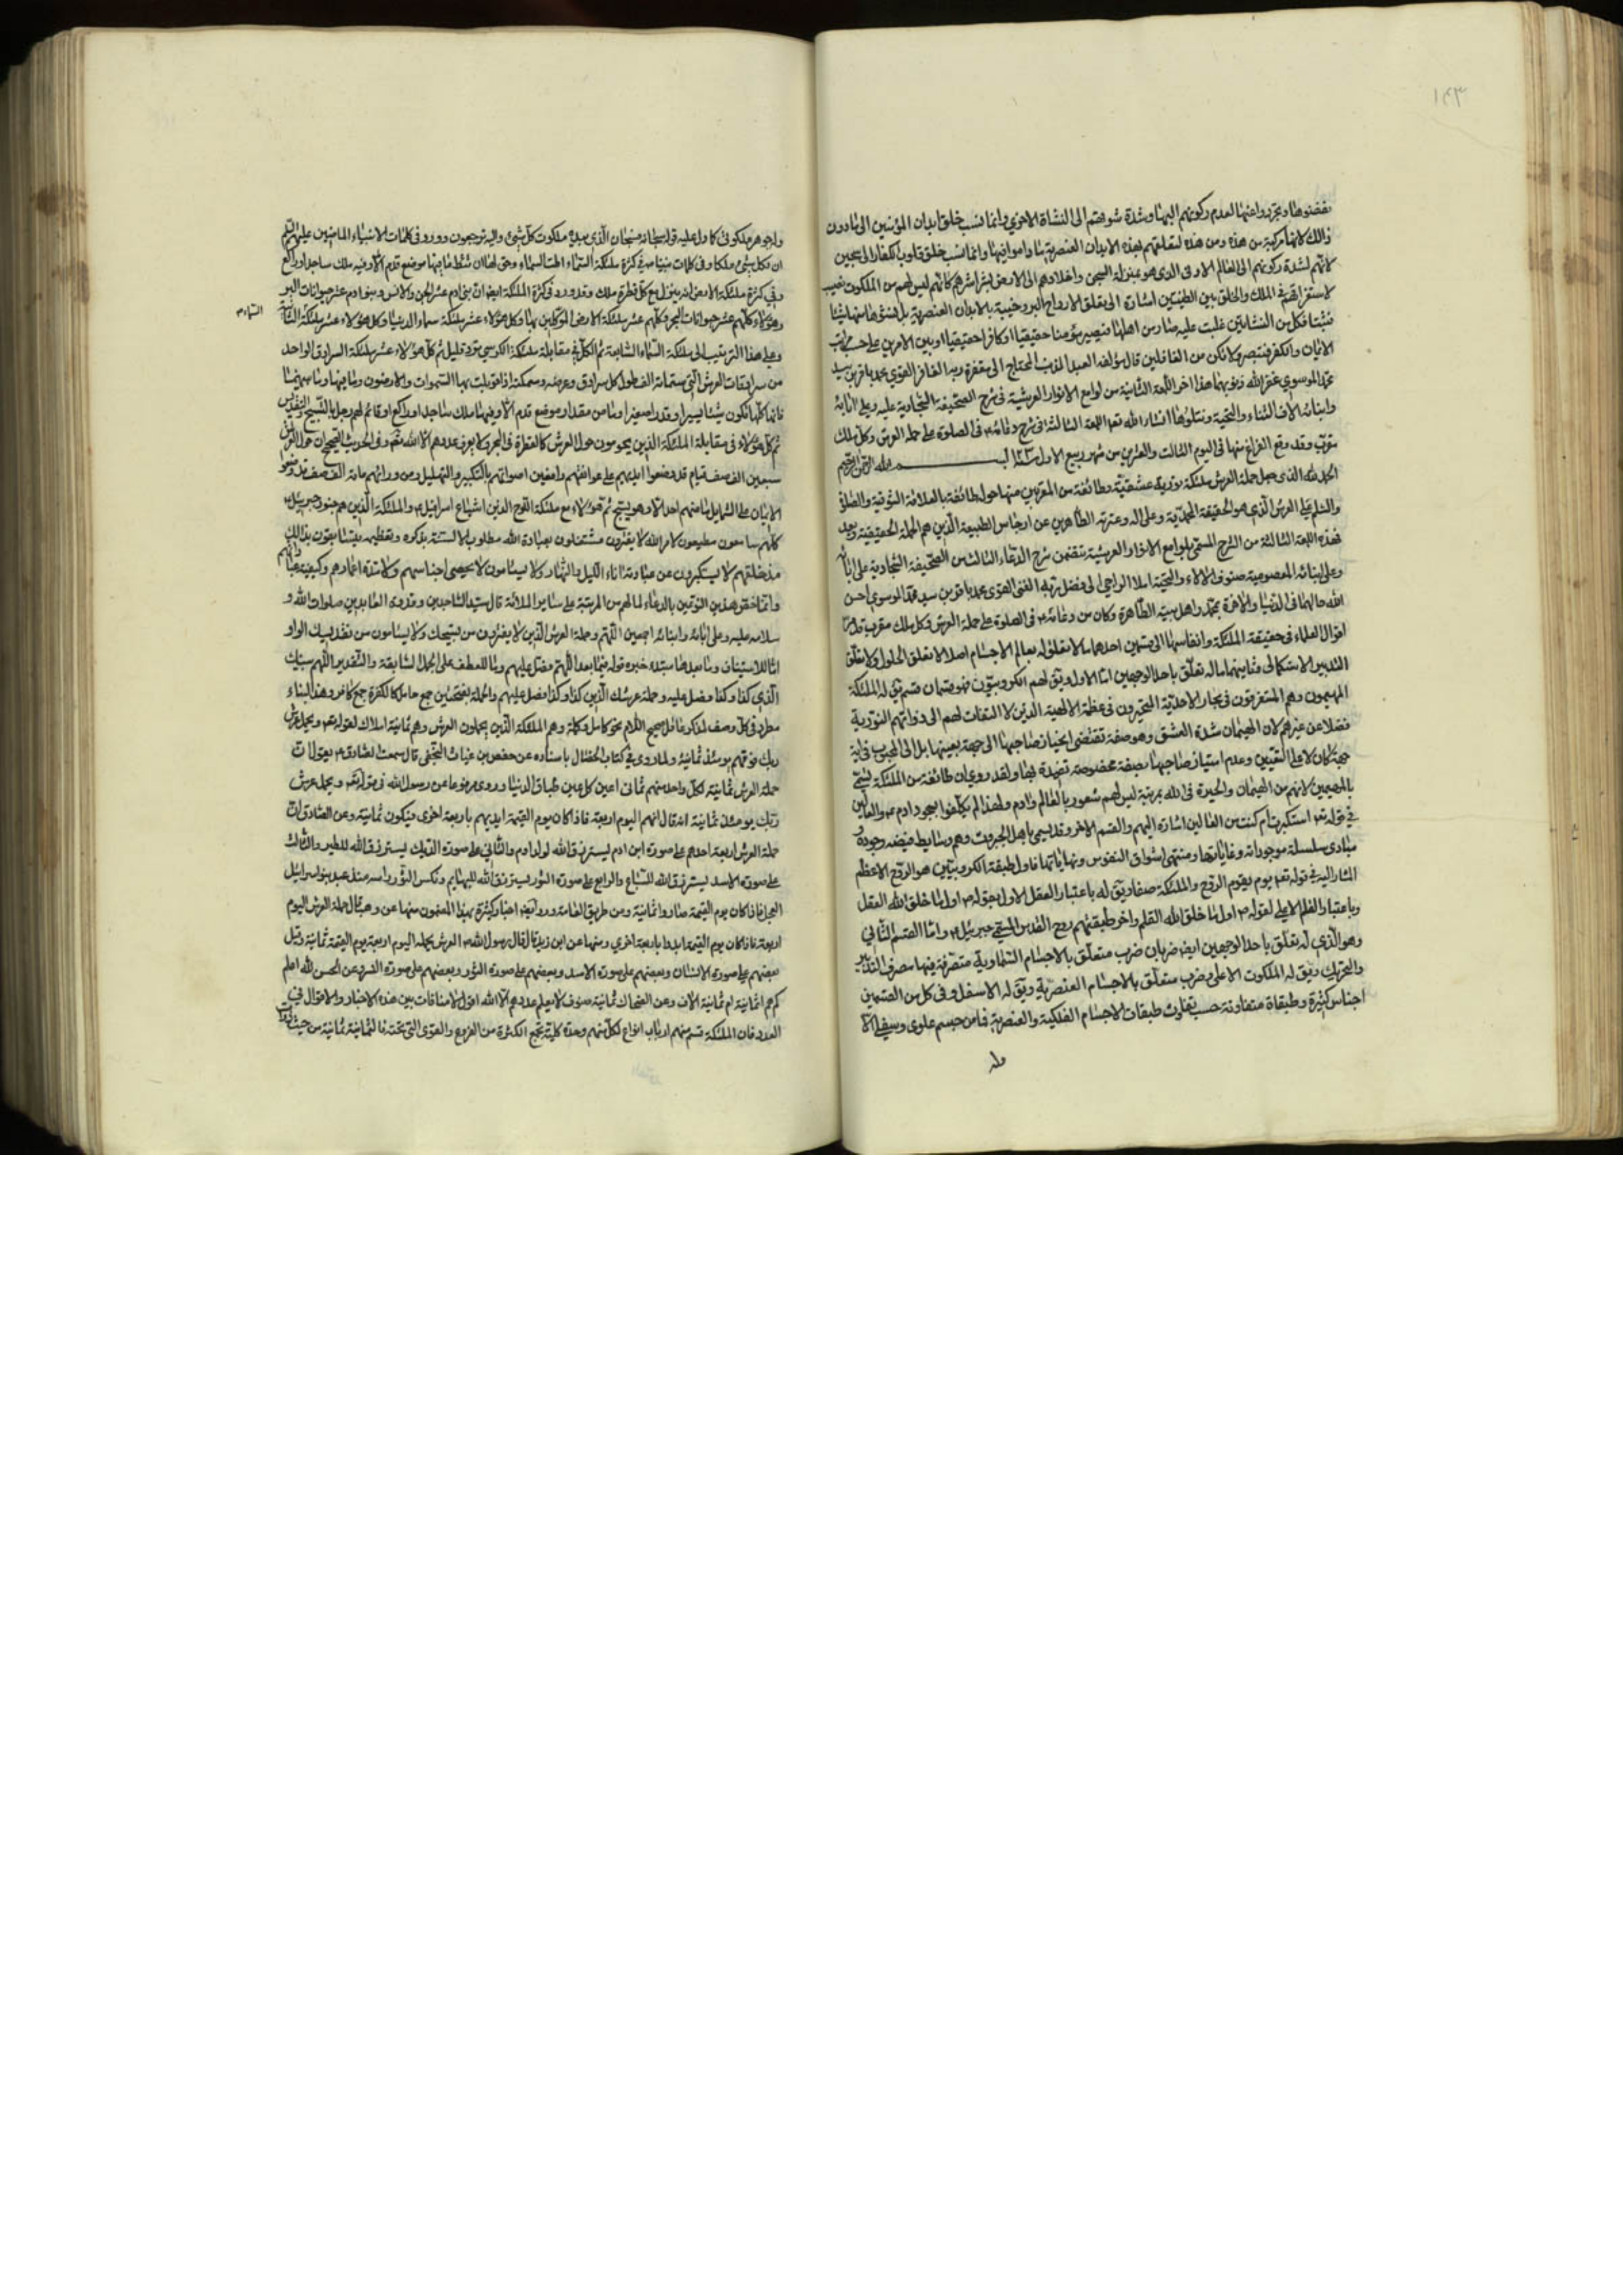 ١٤٣
نفضوها وتجردوا عنها لعدم ركونهم اليها وشدة شوقهم الى النشاة الاخرى وانما نسب خلق ابدان المؤمنين الى مادون
ذلك لانها مركبة من هذه ومن هذه لتعلقهم بهذه الابدان العنصرية وانما نسب خلق قلوب الكفار الى سجين
لانهم لشدة ركونهم الى العالم الادنى الذى هو بمنزلة السجن واخلادهم الى الارض بشراشرهم كانهم ليس لهم من الملكوت نصيب
لاستغراقهم في الملك والخلق بين الطينتين اشارة الى تعلق الارواح البرزخية بالابدان العنصرية بل نشوها منها شيئا
فشيئا فكل من النشاتين غلبت عليه صار من اهلها فيصير مؤمنا حقيقيا او كافرا حقيقيا او بين الامرين على حسب مراتب
الايمان والكفر فتبصر ولا تكن من الغافلين قال مؤلفه العبد المذنب المحتاج الى مغفرة ربه الغافر القوي محمد باقر بن سيد
محمد الموسوي غفر الله ذنوبهما هذا اخر اللمعة الثانية من لوامع الانوار العرشية في شرح الصحيفة السجادية عليه وعلى ابائه
وابنائه الاف الثناء والتحية ويتلوها انشاء الله تعالى اللمعة الثالثة في شرح دعائه في الصلوة على حملة العرش وكل ملك
مقرب وقد وقع الفراغ منها فى اليوم الثالث والعشرين من شهر ربيع الاول سنة بسم الله الرحمن الرحيم
الحمد لله الذى جعل حملة العرش ملئكة نورية عشقية وطائفة من المقربين منها حول طائفة بالعلاقة الشوقية والصلوة
والسلم على العرش الذي هو الحقيقة المحمدية وعلى اله وعترته الطاهرين عن ارجاس الطبيعة الذين هم الحملة الحقيقية وبعد
فهذه اللمعة الثالثة من الشرح المسمى بلوامع الانوار العرشية يتضمن شرح الدعاء الثالث من الصحيفة السجادية على ابائه
وعلى ابنائه المعصومية صنوف الالاء والتحية املاء الراجي الى فضل ربه الغنى القوى محمد باقر بن سيد محمد الموسوي احسن
الله حالهما فى الدنيا والاخرة بمحمد واهل بيته الطاهرة وكان من دعائه فى الصلوة على حملة العرش وكل ملك مقرب
اقوال العلماء فى حقيقة الملئكة وانقسامها الى قسمين احدهما ما لا تعلق له بعالم الاجسام اصلا لا تعلق الحلول ولا تعلق
التدبير الاستكمالى وثانيهما ماله تعلق باحد الوجهين اما الاول ويق لهم الكروبيون فهو قسمان قسم يق له الملئكة
المهيمون وهم المستغرقون فى بحار الاحدية المتحيرون فى عظمة الالهية الذين لا التفات لهم الى ذواتهم النورية
فضلا عن غيرهم لان الهيمان شدة العشق وهو صفة تقتضى انحياز صاحبها الى جهة بعينها بل الى المحبوب فى اية
جهة كان لا على التعيين وعدم امتياز صاحبها بصفة مخصوصة
بالمهيمين لانهم من الهيمان والحيرة فى الله بمرتبة ليس لهم شعور بالعالم وادم ولهذا لم يكلفوا بسجود ادم والعالين
في قوله تعالى استكبرت ام كنت من العالين اشارة اليهم والقسم الاخر وقد يسمى باهل الجبروت وهم وسايط فيضه وجوده و
مبادى سلسلة موجوداته وغاياتها ومنتهى اشواق النفوس ونهاياتها فاول طبقة الكروبيين هو الروح الاعظم
المشار اليه في قوله تعالى يوم يقوم الروح والملئكة صفا ويق له باعتبار العقل الاول بقوله اول ما خلق الله العقل
وباعتبار القلم الاعلى لقوله اول ما خلق الله القلم واخر طبقتهم روح القدس المسمى جبرئيل واما القسم الثاني
وهو الذي له تعلق باحد الوجهين ايضا ضربان ضرب متعلق بالاجسام السماوية متصرفة فيها تصرف التدبير
والتحريك ويق له الملكوت الاعلى وضرب متعلق بالاجسام العنصرية ويق له الاسفل وفى كل من القسمين
اجناس كثيرة وطبقاة متفاوتة حسب تفاوت طبقات الاجسام الفلكية والعنصرية فما من جسم علوى وسفلي الا
وله
وله جوهر ملكوتى كما دل عليه قوله سبحانه فسبحان الذى بيده ملكوت كل شىء واليه ترجعون وورد في كلمات الانبياء الماضين عليهم السلم
ان لكل شىء ملكا وفى كلمات نبينا في كثرة ملئكة السماء اطت السماء وحق لها ان تئط ما فيها موضع قدم الا وفيه ملك ساجد او راكع
وفي كثرة ملئكة الارض انه ينزل مع كل قطرة ملك وقد ورد فى كثرة الملئكة ايضا ان بنى ادم عشر الجن والانس وبنو ادم عشر حيوانات البر
وهؤلاء كلهم عشر حيوانات البحر وكلهم عشر ملئكة الارض الموكلين بها وكل هؤلاء عشر ملئكة سماء الدنيا وكل هؤلاء عشر ملئكة الثانية
السماء
وعلى هذا الترتيب الى ملئكة السماء السابعة ثم الكل فى مقابلة ملئكة الكرسي نزر قليل ثم كل هؤلاء عشر ملئكة السرادق الواحد
من سرادقات العرش التى ستمائة الف طول كل سرادق وعرضه وسمكه اذا قوبلت بها السموات والارضون وما فيها وما بينهما
فانها كلها تكون شيئا يسيرا وقدرا صغيرا وما من مقدار موضع قدم الا وفيها ملك ساجد او راكع او قائم لهم زجل بالتسبيح والتقديس
ثم كل هؤلاء فى مقابلة الملئكة الذين يحومون حول العرش كالقطرة فى البحر ولا يعرف عددهم الا الله تعالى وفى الحديث الصحيح ان حول العرش
سبعين الف صف قيام قد وضعوا ايديهم على عواتقهم رافعين اصواتهم بالتكبير والتهليل ومن ورائهم مائة الف صف قد وضعوا
الايمان على الشمايل ما منهم احد الا وهو يسبح ثم هؤلاء مع ملئكة اللوح الذين اشياع اسرافيل والملئكة الذين هم جنود جبرئيل
كلهم سامعون مطيعون لامر الله لا يفترون مشتغلون بعبادة الله مطلوب الالسنة بذكره وتعظيمه يتسابقون بذلك
مذ خلقهم لا يستكبرون عن عبادته اناء الليل والنهار ولا يسئمون لا يحصى اجناسهم ولا مدة اعمارهم وكيفية عباداتهم
وانما خص هذين النوعين بالدعاء لما لهم من المرتبة على ساير الملائة قال سيد الساجدين وقدوة العابدين صلوات الله و
سلامه عليه وعلى ابائه وابنائه اجمعين اللهم وحملة العرش الذين لا يفترون من تسبيحك ولا يسئمون من تقديسك الواو
اما للاستيناف وما بعدها مبتدء خبره قوله فيما بعد اللهم فصل عليهم واما للعطف على الجمل السابقة والتقدير اللهم نبيك
الذي كذا وكذا فصل عليه وحملة عرشك الذين كذا وكذا فصل عليهم والحملة بفتحتين جمع حامل كالكفرة جمع كافر وهذا البناء
مطرد فى كل وصف لمذكر عاقل صحيح اللام نحو كامل وكملة وهم الملئكة الذين يحملون العرش وهم ثمانية املاك لقوله تعالى ويحمل عرش
ربك فوقهم يومئذ ثمانية ولما روى في كتاب الخصال باسناده عن حفص بن غياث النخعى قال سمعت الصادق يقول ان
حملة العرش ثمانية لكل واحد منهم ثمانى اعين كل عين طباق الدنيا وروى مرفوعا عن رسول الله فى قوله تعالى ويحمل عرش
ربك يومئذ ثمانية انه قال انهم اليوم اربعة فاذا كان يوم القيمة ايديهم باربعة اخرى فيكون ثمانية وعن الصادق ان
حملة العرش اربعة احدهم على صورة ابن ادم يسترزق الله لولد ادم والثانى على صورة الديك يسترزق الله للطير والثالث
على صورة الاسد يسترزق الله للسباع والرابع على صورة الثور يسترزق الله للبهايم ونكس الثور راسه منذ عبد بنو اسرائيل
العجل فاذا كان يوم القيمة صاروا ثمانية ومن طريق العامة ورد ايضا اخبار كثيرة بهذا المضمون منها عن وهب قال حملة العرش اليوم
اربعة فاذا كان يوم القيمة ايدوا باربعة اخري ومنها عن ابن زيد قال قال رسول الله العرش يحمله اليوم اربعة ويوم القيمة ثمانية وقيل
بعضهم على صورة الانسان وبعضهم على صورة الاسد وبعضهم على صورة الثور وبعضهم على صورة النسر وعن الحسن الله اعلم
كم هم اثمانية ام ثمانية الاف وعن الضحاك ثمانية صفوف لا يعلم عددهم الا الله اقول لا منافات بين هذه الاخبار والاقوال في
العدد فان الملئكة قسم منهم ارباب انواع لكل منهم وحدة كلية تجمع الكثرة من الفروع والقوى التى تحته فالثمانية ثمانية من حيث